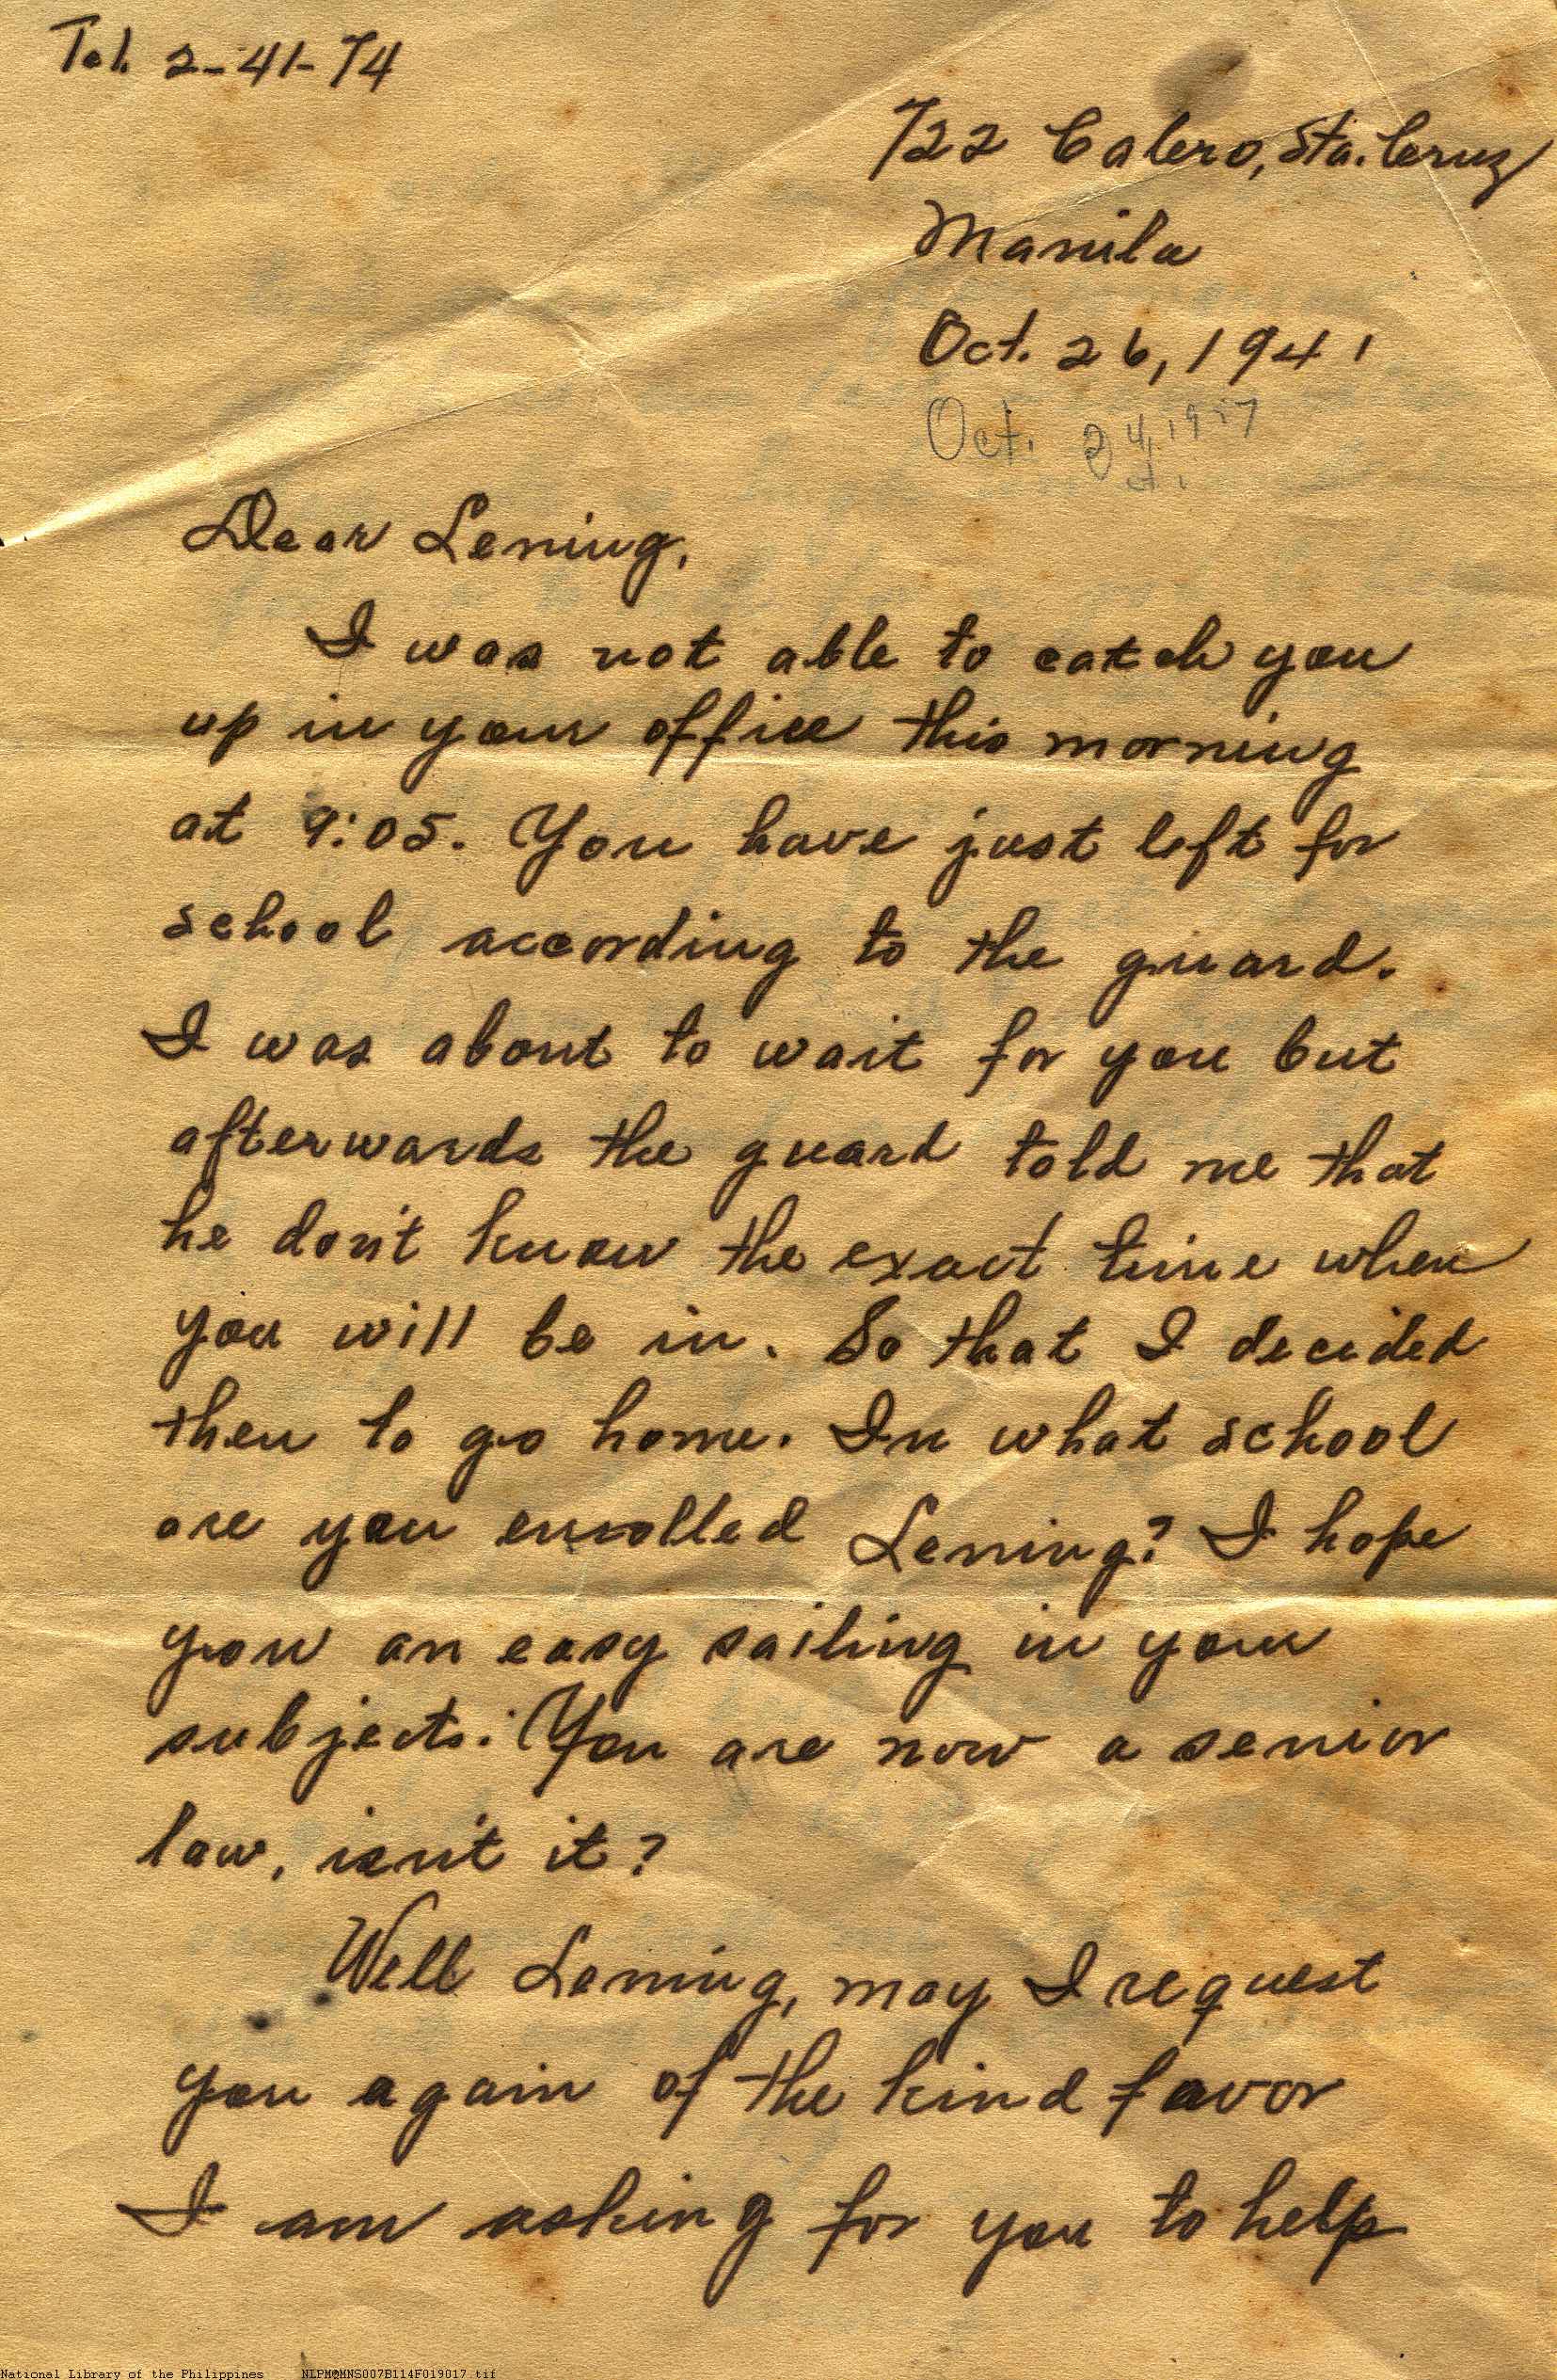 Tel. 2-41-74
722 Calero, Sta. Cruz
Manila
Oct. 26, 1941
Oct. 24, 19
Dear Lening,
I was not able to catch you
up in your office this morning
at 9:05. You have just left for
school according to the guard.
I was about to wait for you but
afterwards the guard told me that
he don't know the exact time when
you will be in. So that I decided
then to go home. In what school
are you enrolled Lening? I hope
you an easy sailing in your
subjects. You are now a senior
law, isn't it?
Well Lening, may I request
you again of the kind favor
I am asking for you to help
National Library of the Philippines NLPMQMNS007B114F019017.tif